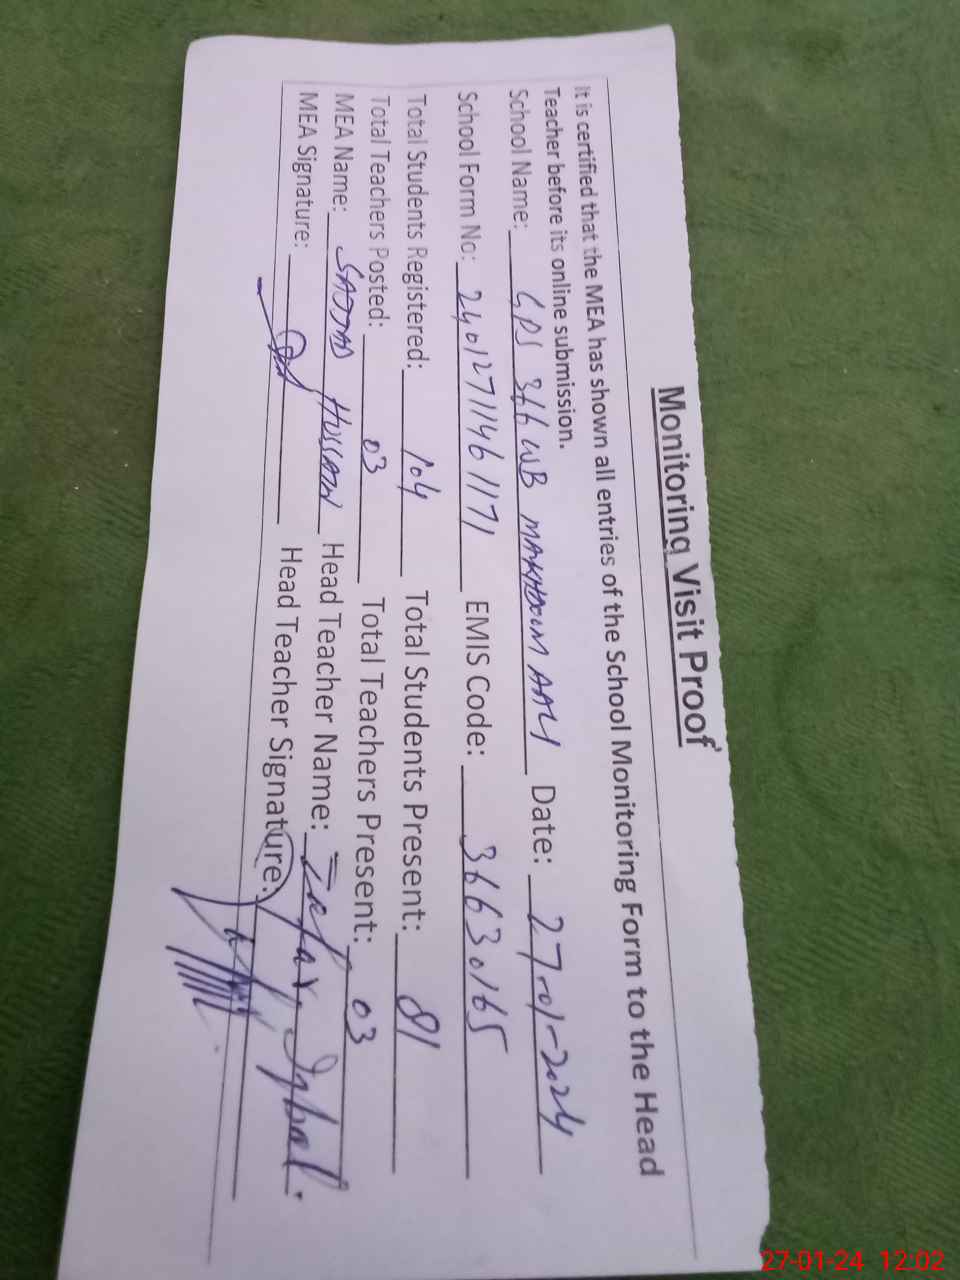 Monitoring Visit Proof
It is certified that the MEA has shown all entries of the School Monitoring Form to the Head
Teacher before its online submission.
School Name: GPS 366 WB MAKHDOOM AALI Date: 27-01-2024
School Form No: 2401271146 11171 EMIS Code: 36630165
Total Students Registered: 104 Total Students Present: 81
Total Teachers Posted: 03 Total Teachers Present: 03
MEA Name: SAJJAD HUSSAIN Head Teacher Name: Iqbal.
MEA Signature: Head Teacher Signature:
27-01-24 12:02